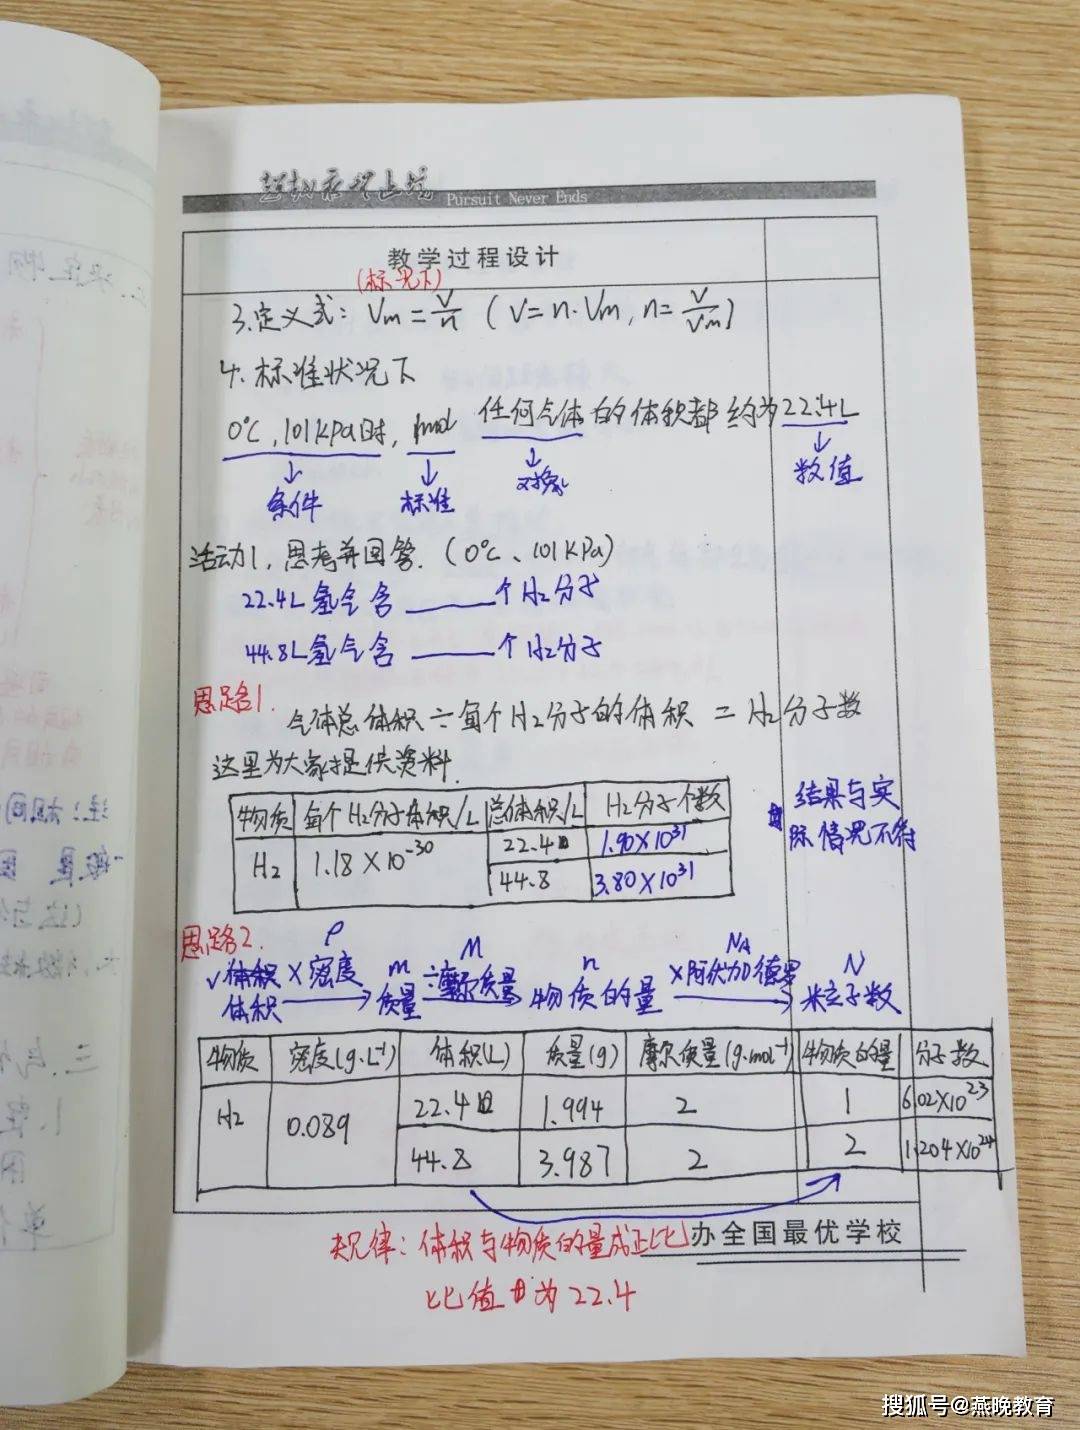 Pursuit Never Ends
教学过程设计
(标况下)
3.定义式: Vm = V/n ( V=n·Vm, n= V/Vm )
4.标准状况下
0℃,101KPa时,1mol 任何气体的体积都约为22.4L
↓ 条件 ↓ 标准 ↓ 对象 ↓ 数值
活动1,思考并回答.(0℃、101KPa)
22.4L氢气含______个H₂分子
44.8L氢气含______个H₂分子
思路1.
气体总体积÷每个H₂分子的体积 = H₂分子数
这里为大家提供资料.
物质 每个H₂分子体积/L 总体积/L H₂分子个数
H₂ 1.18×10⁻³⁰ 22.4 1.90×10³¹
44.8 3.80×10³¹
结果与实
际情况不符
思路2.
ρ M NA
V 体积 ×密度 m ÷摩尔质量 n ×阿伏加德罗 N
体积 → 质量 → 物质的量 → 粒子数
物质 密度(g·L⁻¹) 体积(L) 质量(g) 摩尔质量(g·mol⁻¹) 物质的量 分子数
H₂ 0.089 22.4 1.994 2 1 6.02×10²³
44.8 3.987 2 2 1.204×10²⁴
规律:体积与物质的量成正比
比值 为 22.4
办全国最优学校
搜狐号@燕晚教育